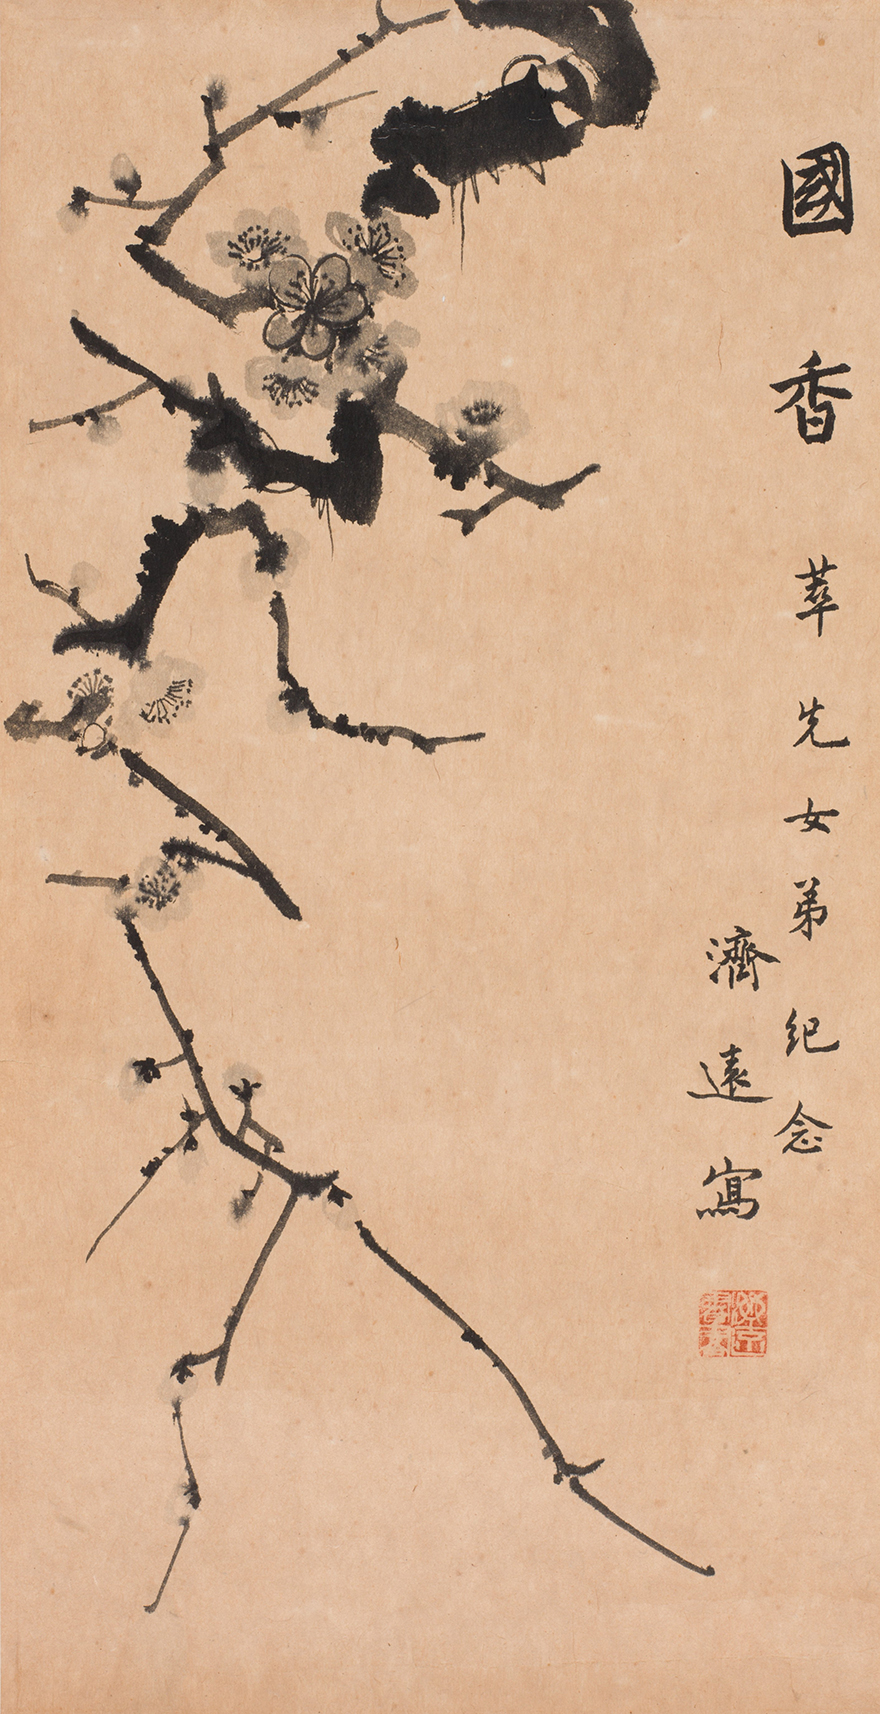 國香
萃先女弟紀念
濟遠寫